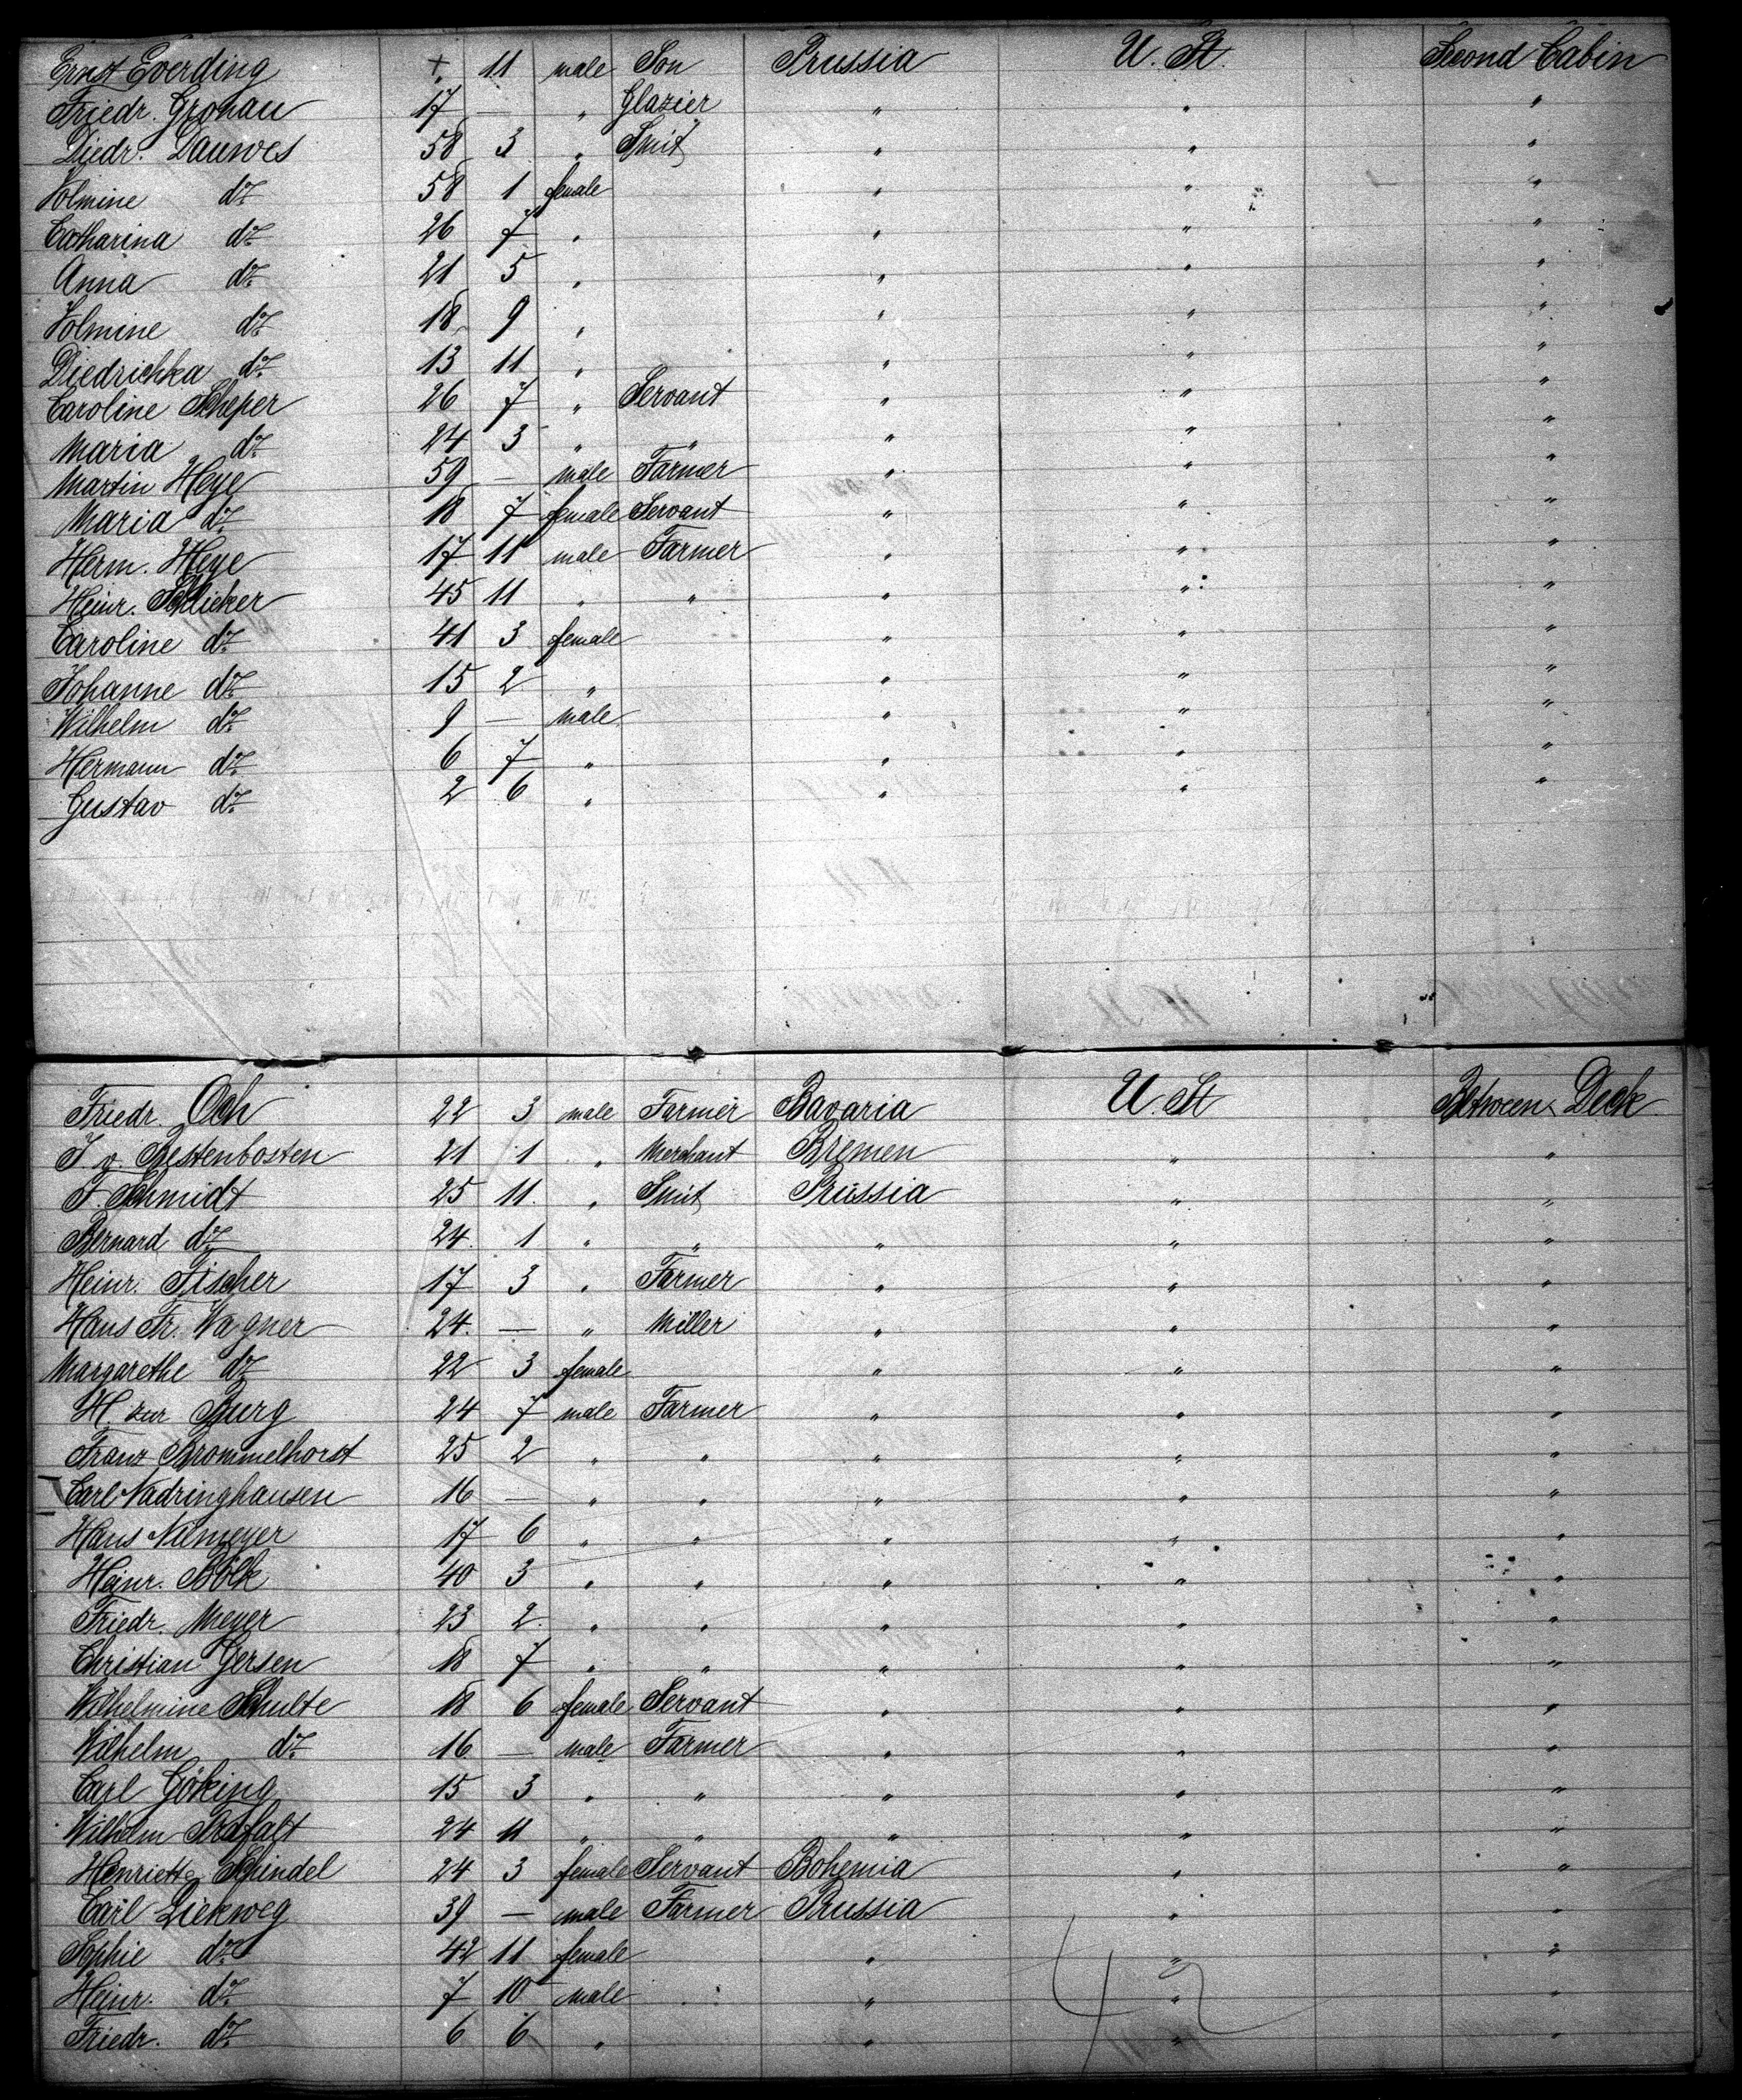 Ernz Everding + 11 male Son Prussia U. St. Second Cabin
Friedr. Gronau 17 — " Glazier " " "
Diedr. Dauwes 58 3 " Smit " " "
Volmine do. 58 1 female " " "
Catharina do. 26 7 " " " "
Anna do. 21 5 " " " "
Volmine do. 18 9 " " " "
Diedrichka do. 13 11 " " " "
Caroline Scheper 26 7 " Servant " " "
Maria do. 24 3 " " " " "
Martin Heye 59 — male Farmer " " "
Maria do. 18 7 female Servant " " "
Herm. Heye 17 11 male Farmer " " "
Heinr. Schlicker 45 11 " " " " "
Caroline do. 41 3 female " " "
Johanne do. 15 2 " " " "
Wilhelm do. 9 — male " " "
Hermann do. 6 7 " " " "
Gustav do. 2 6 " " " "
Friedr. Och 22 3 male Farmer Bavaria U. St Between Deck
J. v. Bestenbosten 21 1 " Merchant Bremen " "
F. Schmidt 25 11 " Smit Prussia " "
Bernard do. 24 1 " " " " "
Heinr. Fischer 17 3 " Farmer " " "
Hans Fr. Wagner 24 — " Miller " " "
Margarethe do. 22 3 female " " "
H. zur Burg 24 7 male Farmer " " "
Franz Brommelhorst 25 2 " " " " "
Carl Nadringhausen 16 — " " " " "
Hans Niemeyer 17 6 " " " " "
Heinr. Bölk 40 3 " " " " "
Friedr. Meyer 23 2 " " " " "
Christian Gersen 18 7 " " " " "
Wilhelmine Schulte 18 6 female Servant " " "
Wilhelm do. 16 — male Farmer " " "
Carl Göking 15 3 " " " " "
Wilhelm 24 11 " " " " "
Henriette Schindel 24 3 female Servant Bohemia " "
Carl Liekweg 39 — male Farmer Prussia " "
Sophie do. 42 11 female " " "
Heinr. do. 7 10 male " " "
Friedr. do. 6 6 " " " "
42